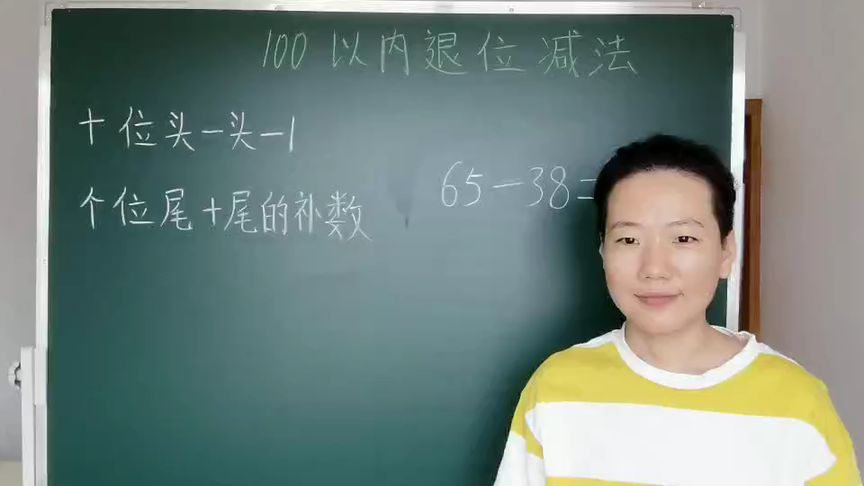 100以内退位减法
十位头-头-1
个位尾+尾的补数
65-38=